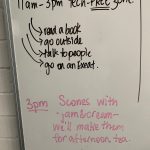 11am - 3pm Tech-FREE zone
read a book
go outside
talk to people
go on an Exeat.
3pm Scones with
-jam&cream-
we'll make them
for afternoon tea.